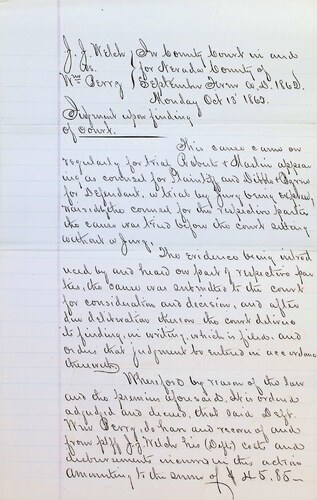 J. J. Welch } In County Court in and
vs. } for Nevada County of
Wm Perry } September Term A.D. 1862.
Monday Oct 13' 1862.
Judgment upon finding
of Court.
This cause came on
regularly for trial, Robert & Maslin appear
ing as counsel for Plaintiff and Dibble & Byrne
for Defendant, a trial by Jury being expressly
waived by the counsel for the respective parties
the cause was tried before the court sitting
without a Jury.
The evidence being introd
uced by and heard on part of respective par
ties, the cause was submitted to the court
for consideration and decision, and after
due deliberation thereon the court delivers
its finding, in writing, which is filed, and
orders that judgment be entered in accordance
therewith
Wherefore by reason of the law
and the premises aforesaid, It is ordered
adjudged and decreed, that said Deft.
Wm Perry, do have and recover of and
from plff J. J. Welch his (Defts) costs and
disbursements incurred in this action
amounting to the sum of $45.85—